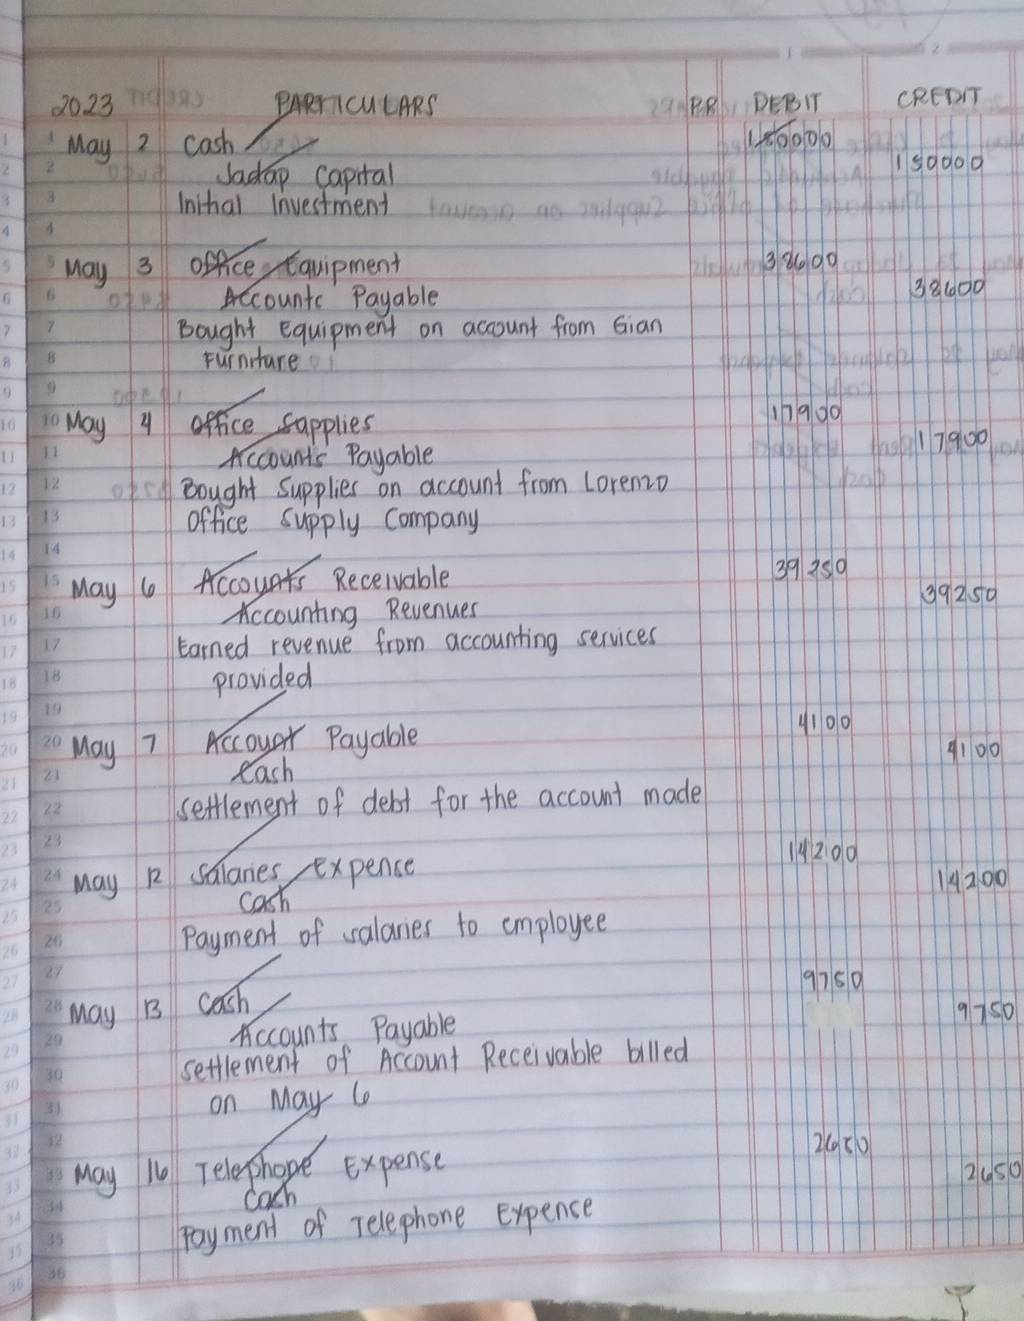 1 2
2023 PARTICULARS P.R DEBIT CREDIT
1 May 2 Cash 150000
2 Jadap Capital 150000
3 Initial Investment
4
5 May 3 Office Equipment 38600
6 Accounts Payable 38600
7 Bought Equipment on account from Gian
8 Furniture
9
10 May 4 Office Sapplies 17900
11 Accounts Payable 17900
12 Bought Supplies on account from Lorenzo
13 Office Supply Company
14
15 May 6 Accounts Receivable 39250
16 Accounting Revenues 39250
17 Earned revenue from accounting services
18 provided
19
20 May 7 Account Payable 4100
21 Cash 4100
22 settlement of debt for the account made
23
24 May 12 Salaries Expense 14200
25 Cash 14200
26 Payment of salaries to employee
27
28 May 13 Cash 9750
29 Accounts Payable 9750
30 settlement of Account Receivable billed
31 on May 6
32
33 May 16 Telephone Expense 2650
34 Cash 2650
35 Payment of Telephone Expense
36